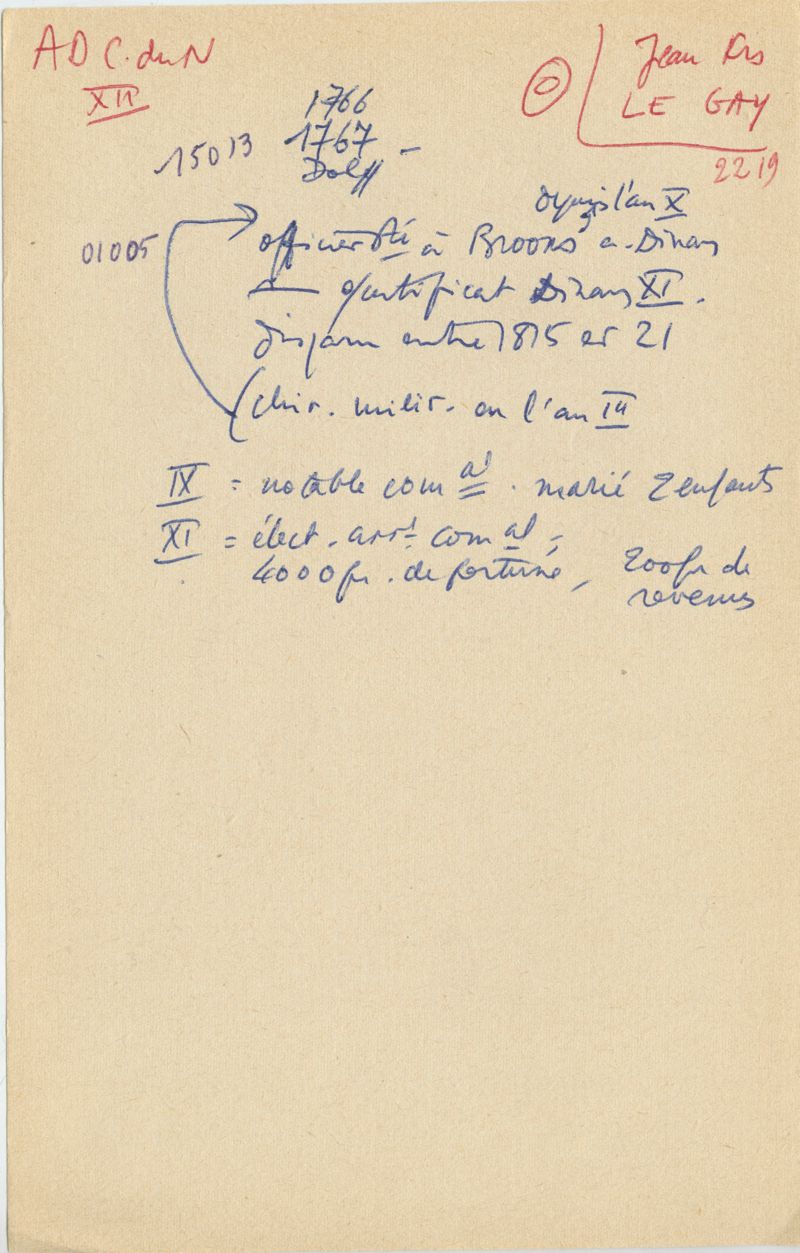 AD C. du N
XII
Jean Frs
LE GAY
2219
1766
1767 -
15013
Dolff
depuis l'an X
01005
officier Sté à Broons à Dinan
certificat Dinan XI.
disparu entre 1815 et 21
(chir. milit. en l'an III
IX = notable com al . marié 2 enfants
XI = élect. arrt com al -
4000 fr. de fortune, 200 fr de
revenus